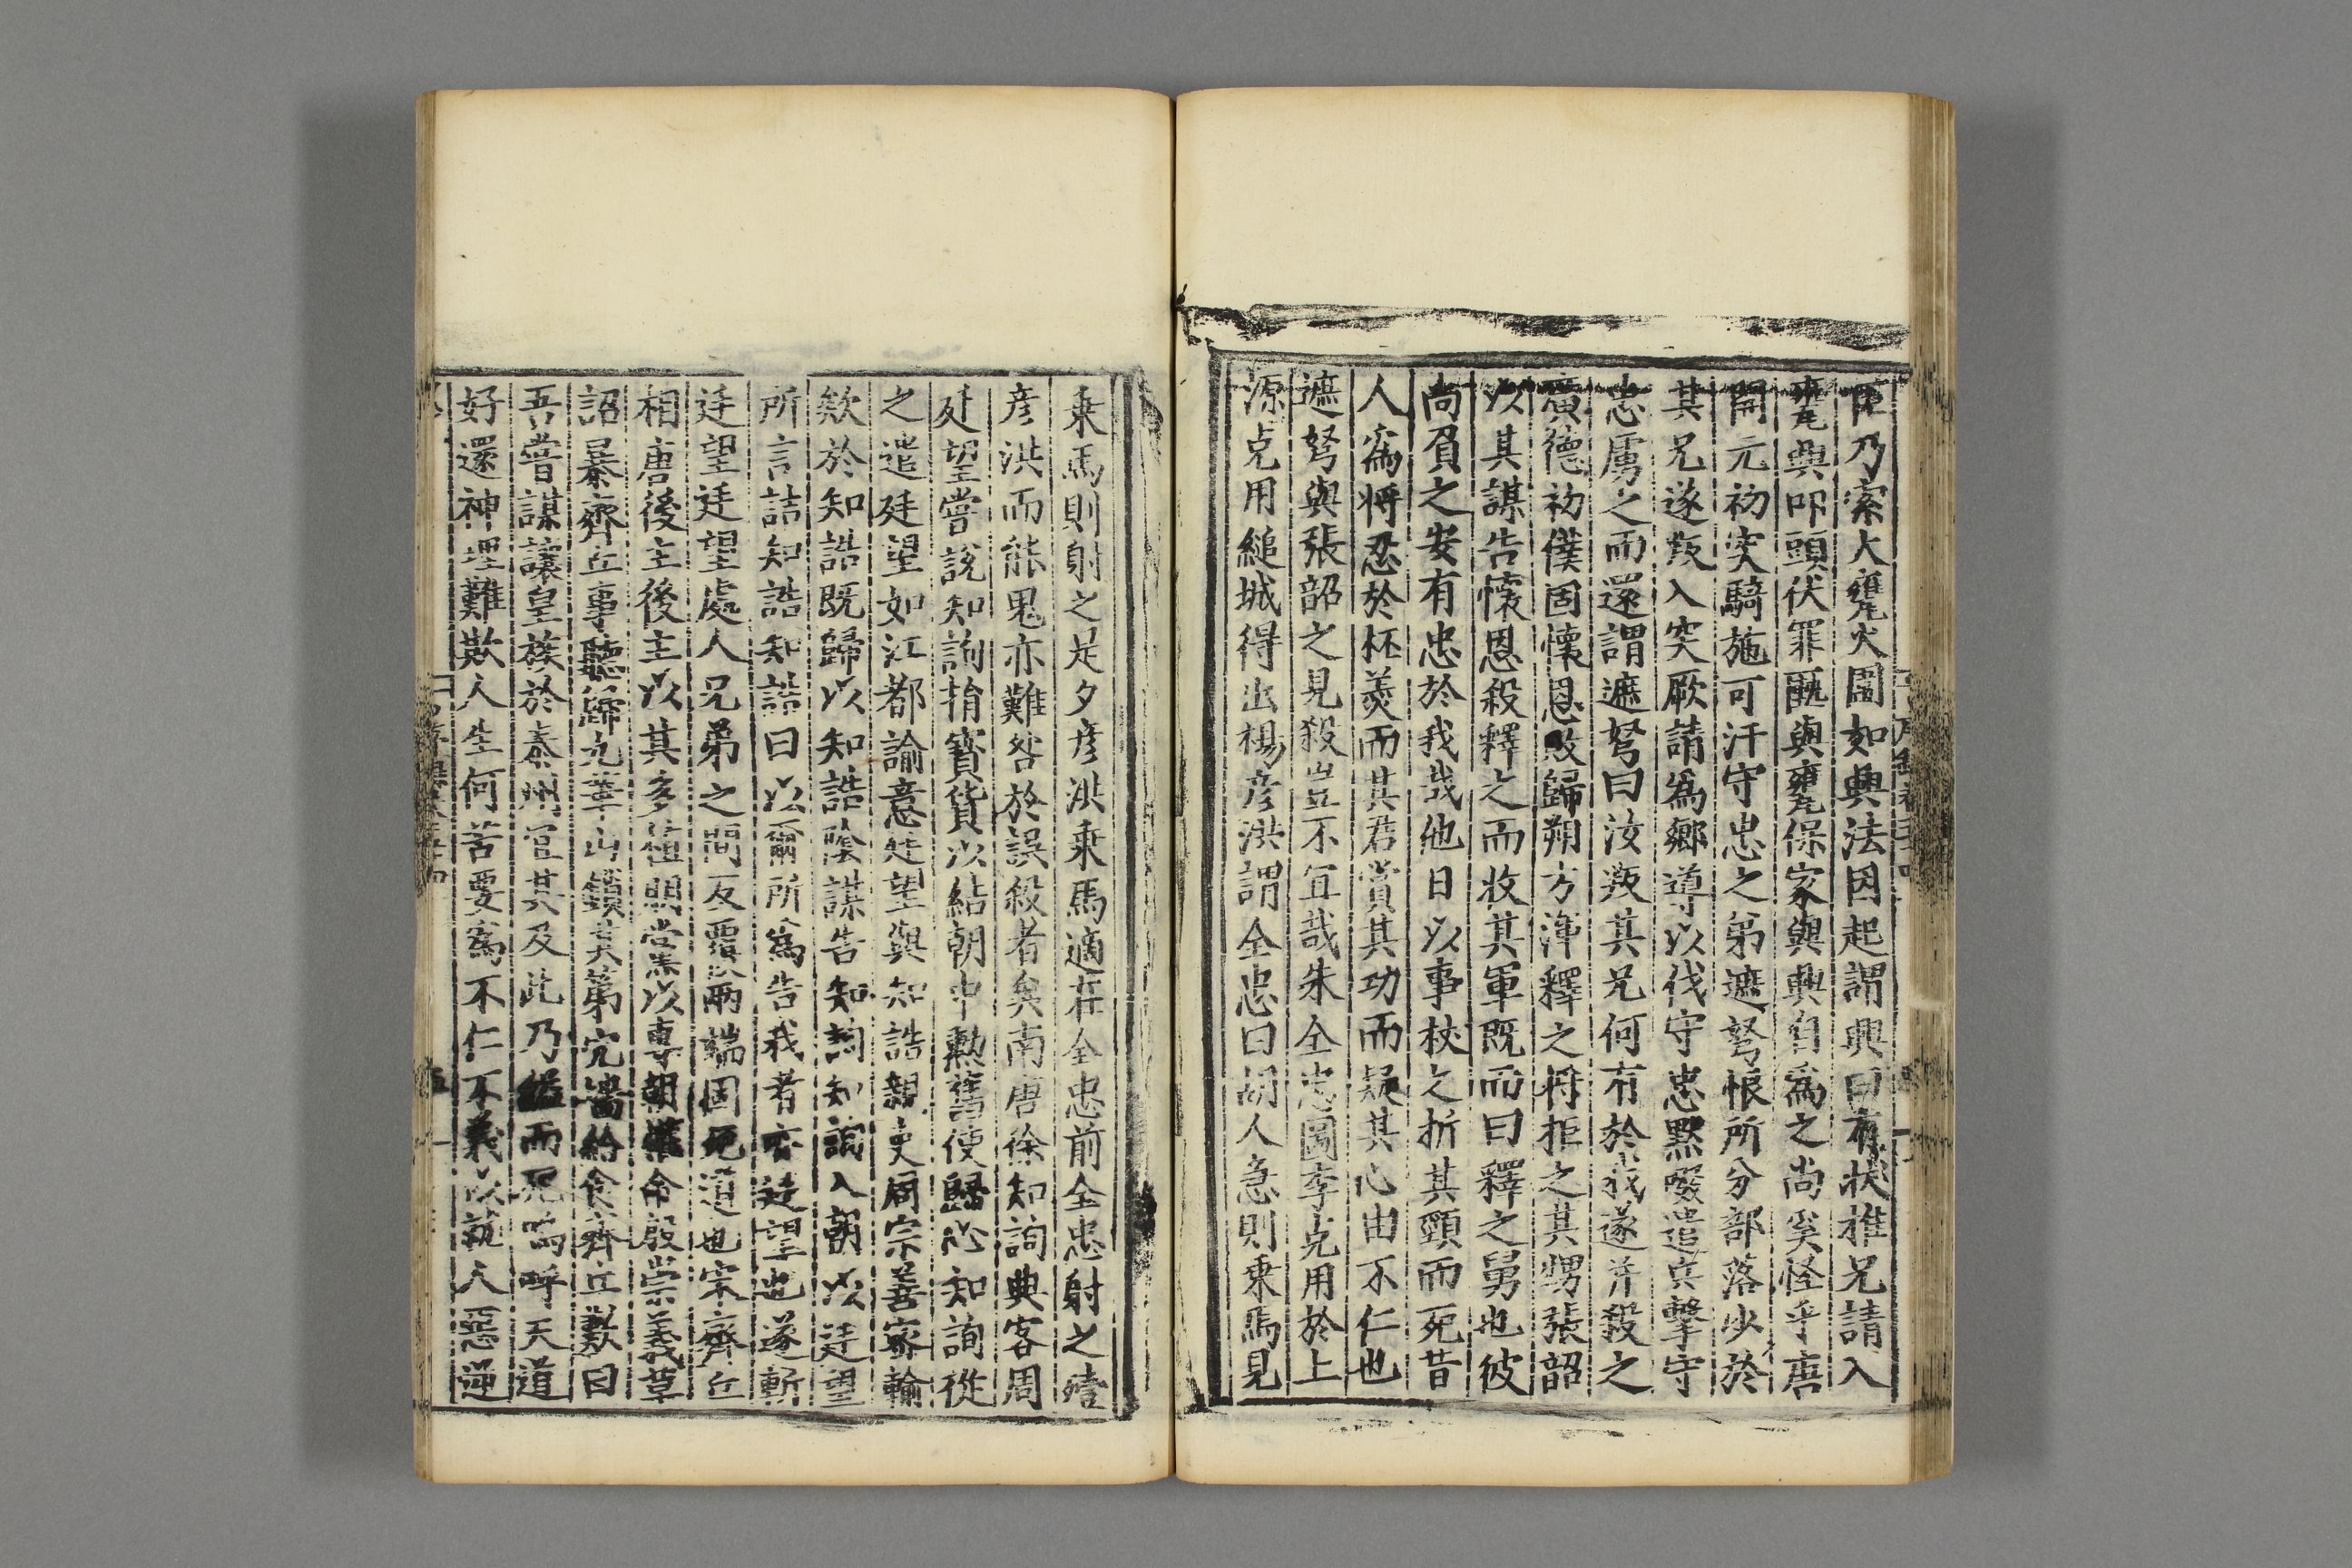 臣乃索大甕火圍如興法因起謂興曰有狀推兄請入
甕興叩頭伏罪甌與甕保家與興自爲之尚奚怪乎唐
開元初突騎施可汗守忠之弟遮弩恨所分部落少於
其兄遂叛入突厥請爲鄉導以伐守忠默啜遣兵擊守
忠虜之而還謂遮弩曰汝叛其兄何有於我遂并殺之
廣德初僕固懷恩敗歸朔方渾釋之將拒之其甥張韶
以其謀告懷恩殺釋之而收其軍既而曰釋之舅也彼
尚負之安有忠於我哉他日以事杖之折其頸而死昔
人爲將忍於杯羹而其君賞其功而疑其心由不仁也
遮弩與張韶之見殺豈不宜哉朱全忠圍李克用於上
源克用縋城得出楊彥洪謂全忠曰胡人急則乘馬見
乘馬則射之是夕彥洪乘馬適在全忠前全忠射之殪
彥洪而能鬼亦難咎於誤殺者矣南唐徐知詢典客周
廷望嘗說知詢捐寶貨以結朝中勲舊使歸心知詢從
之遣廷望如江都諭意廷望與知誥親吏周宗善密輸
欵於知誥既歸以知誥陰謀告知詢知詢入朝以廷望
所言詰知誥知誥曰以爾所爲告我者亦廷望也遂斬
廷望廷望處人兄弟之間反覆兩端固死道也宋齊丘
相唐後主後主以其多植朋黨以專朝權命殷崇義草
詔暴齊丘事聽歸九華山鎖其第穴墻給食齊丘歎曰
吾嘗謀讓皇族於泰州宜其及此乃縊而死嗚呼天道
好還神理難欺人生何苦要爲不仁不義以萟人惡逆